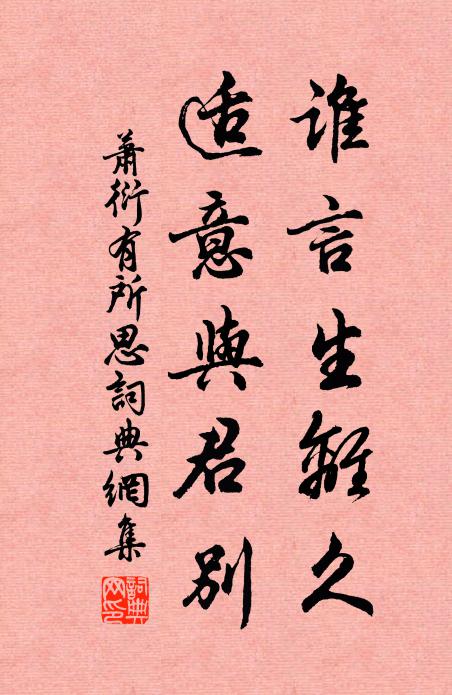 誰言生離久
适意與君別
蕭衍有所思詞典網集
詞典網印